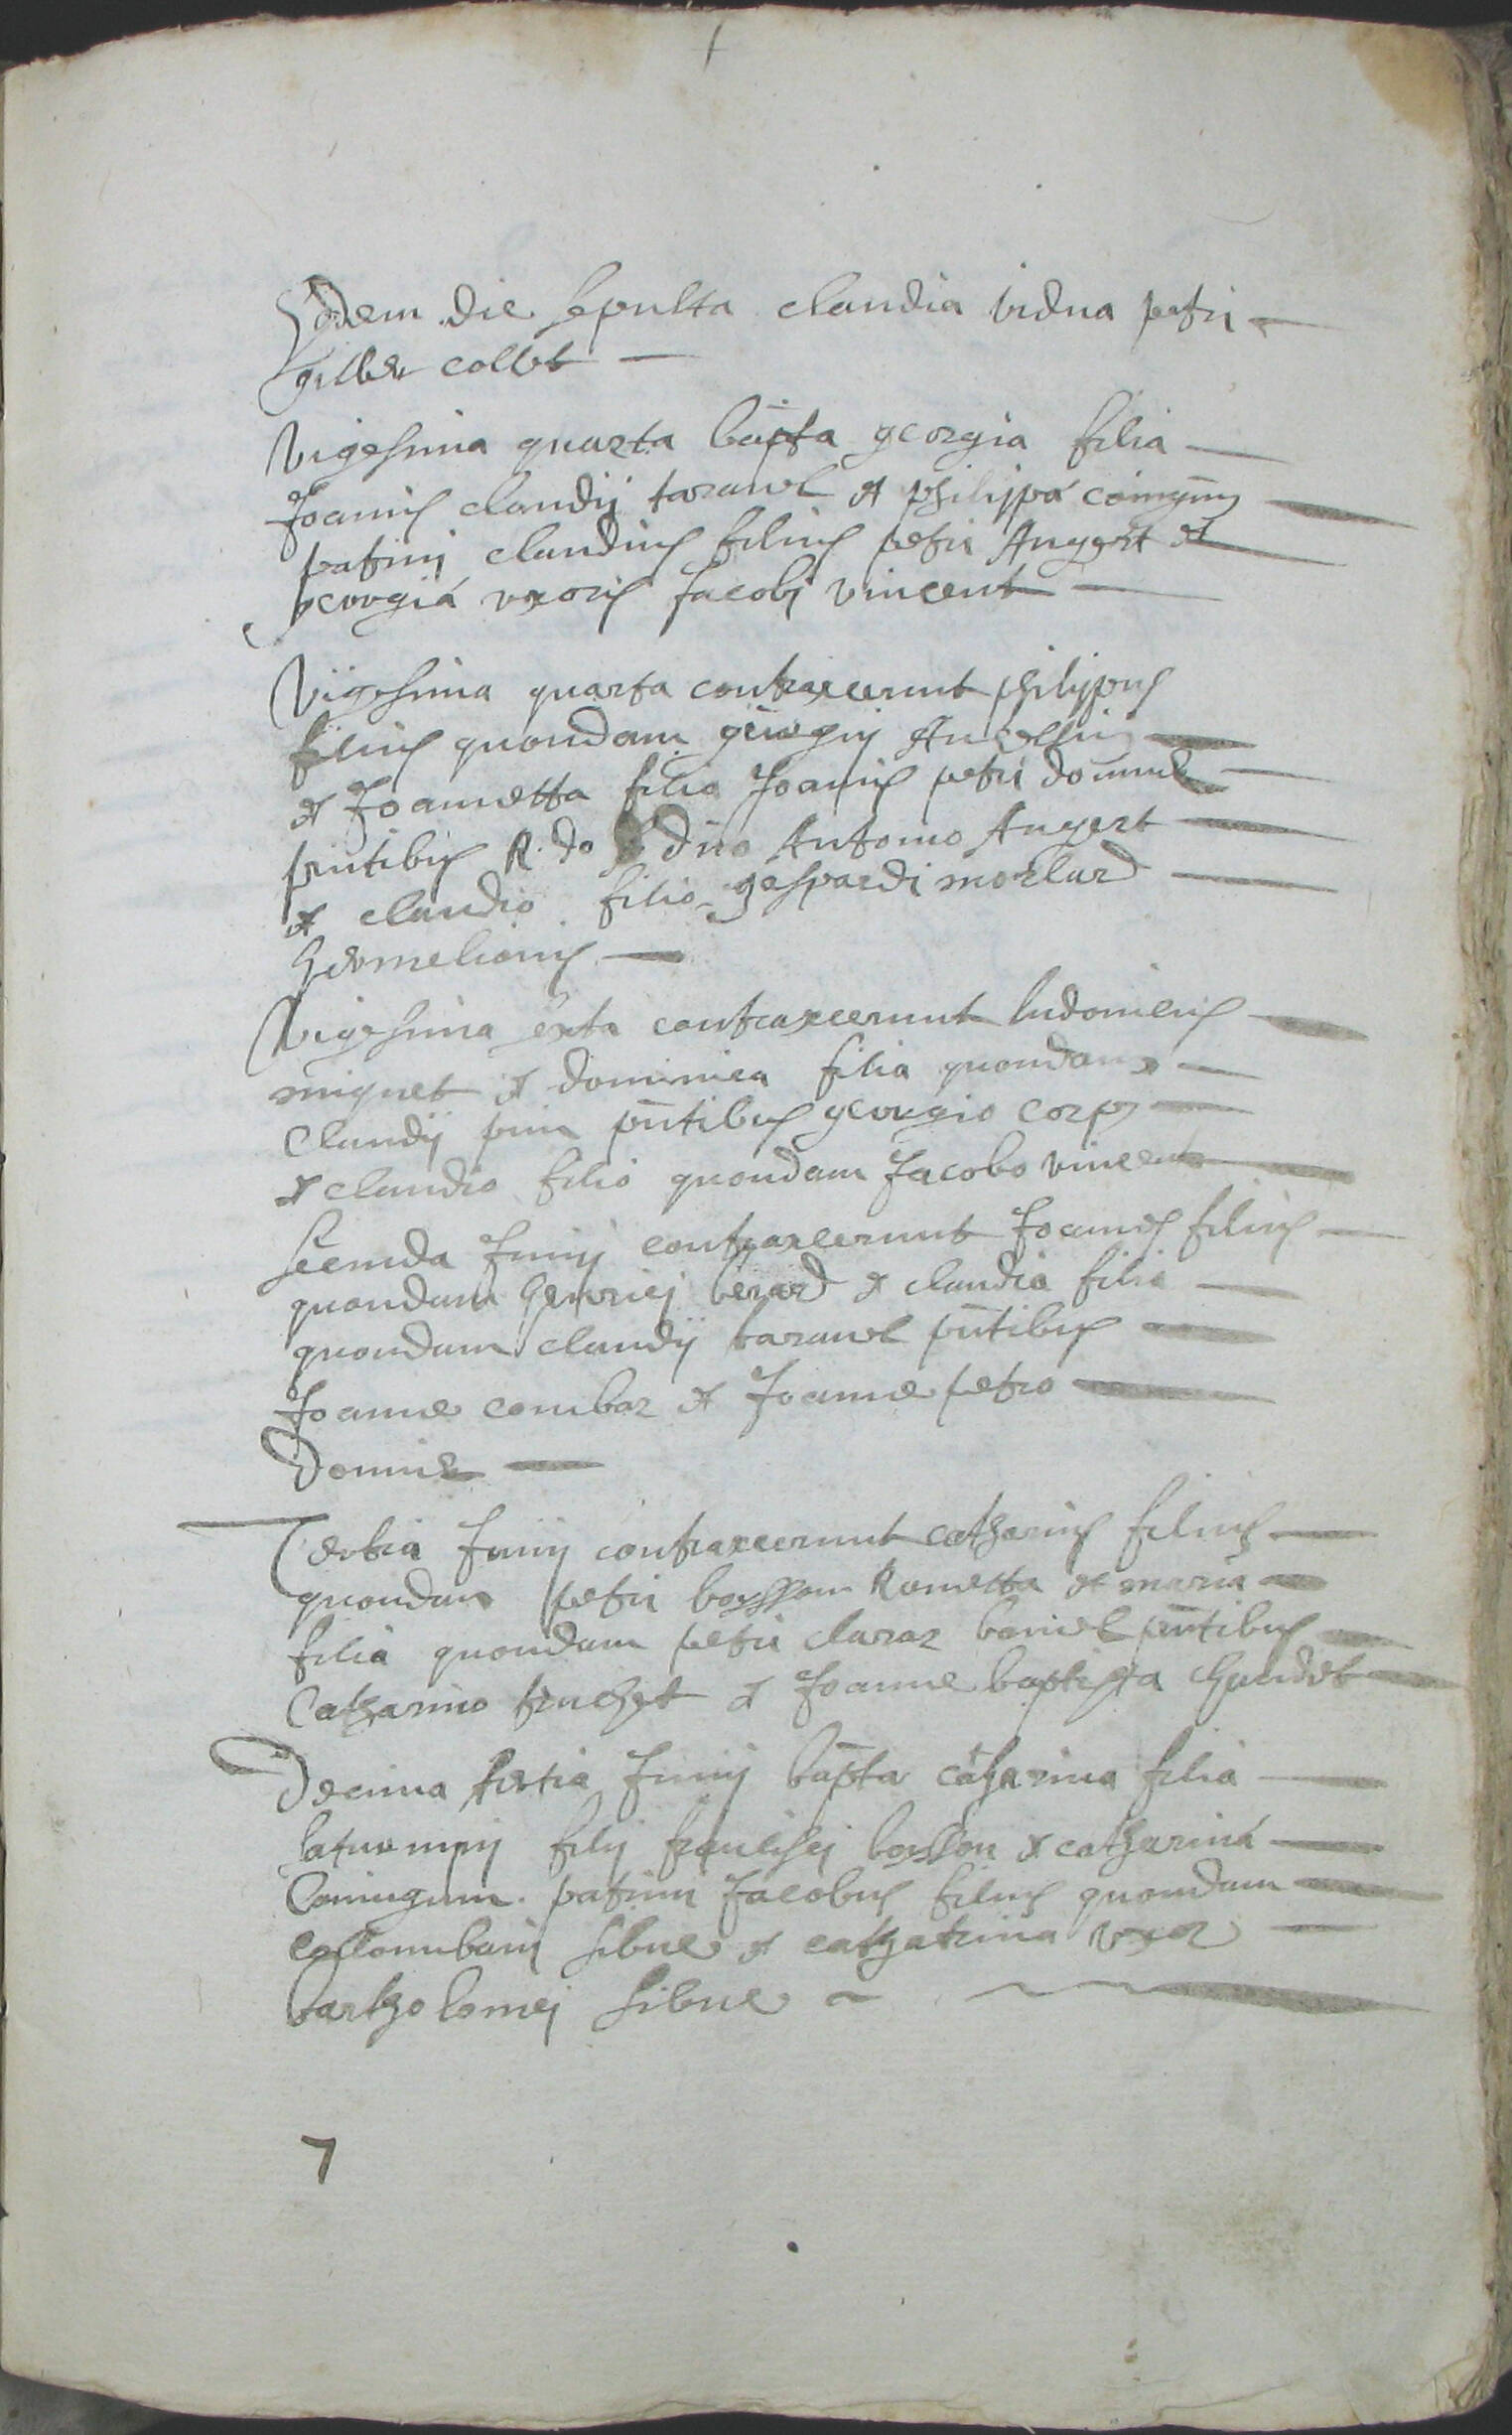 Eodem die sepulta claudia vidua petri
gilbert collet
Vigesima quarta bapta georgia filia
Joanis claudij taravel et philippa coniugum
patrini claudius filius petri Angert et
georgia uxoris Jacobi vincent
Vigesima quarta contraxerunt philippus
filius quondam georgij
et Joannetta filia Joanis petri
pntibus R.do dno Antonio Angert
et claudio filio gaspardi morlard
hermelionis
Vigesima sexta contraxerunt ludovicus
miquet et dominica filia quondam
Claudij pntibus georgio corp
et claudio filio quondam Jacobo vincent
secunda Junij contraxerunt Joannes filius
quondam henrici berard et claudia filia
quondam claudij taravel pntibus
Joanne combaz et Joanne petro
Domne
Tertia Junij contraxerunt catharinus filius
quondam petri bosson Rometta et maria
filia quondam petri claraz pntibus
Catharino truchet et Joanne baptista
Decima tertia Junij bapta catharina filia
saturnini filij francisci bosson et catharina
Coniugum patrini Jacobus filius quondam
collombani sibue et catharina uxor
bartholomej sibue
7